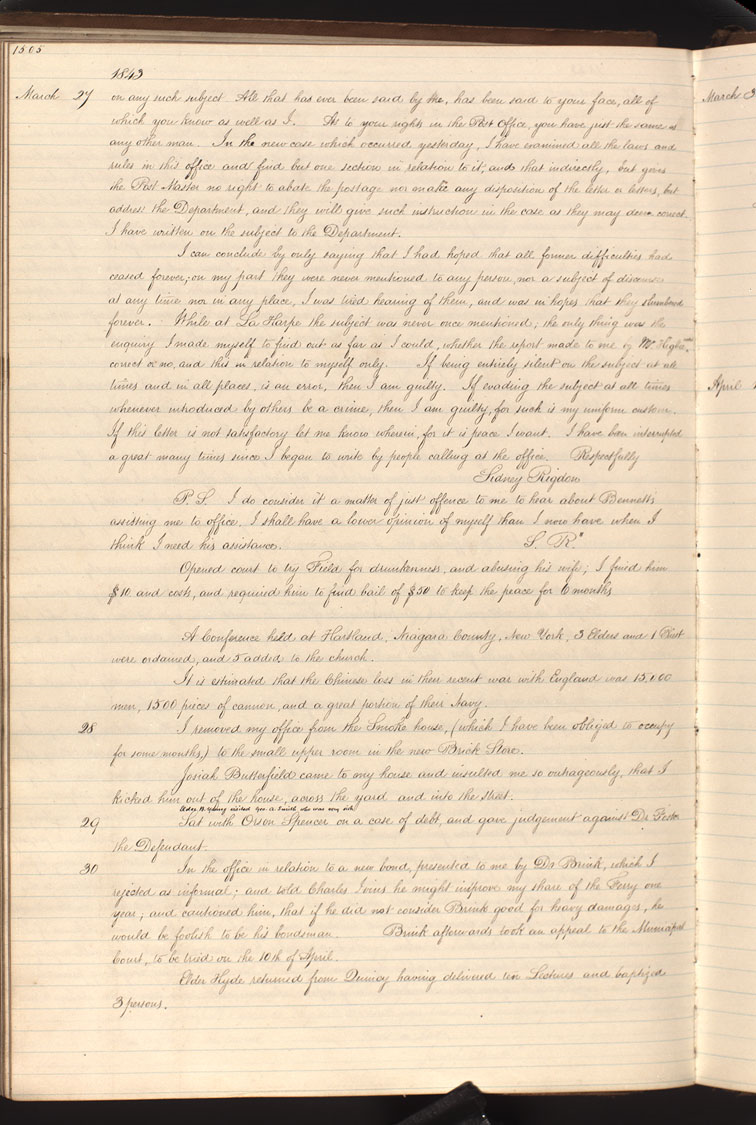 1505
1843
March 27 on any such subject All that has ever been said by me, has been said to your face, all of
which you know as well as I. As to your rights in the Post Office, you have just the same as
any other man. In the new case which occurred yesterday, I have examined all the laws and
rules in this office and find but one section in relation to it; and that indirectly, but gives
the Post Master no right to abate the postage nor make any disposition of the letter or letters, but
address the Department, and they will give such instruction in the case as they may deem correct.
I have written on the subject to the Department.
I can conclude by only saying that I had hoped that all former difficulties had
ceased forever; on my part they were never mentioned to any person, nor a subject of discourse
at any time nor in any place, I was tired hearing of them, and was in hopes that they slumbered
forever. While at La Harpe the subject was never once mentioned; the only thing was the
enquiry I made myself to find out as far as I could, whether the report made to me by Mr. Higbee was
correct or no, and this in relation to myself only. If being entirely silent on the subject at all
times and in all places, is an error, then I am guilty. If evading the subject at all times
whenever introduced by others be a crime, then I am guilty, for such is my uniform custom.
If this letter is not satisfactory let me know wherein, for it is peace I want. I have been interrupted
a great many times since I began to write by people calling at the office. Respectfully
Sidney Rigdon
P.S. I do consider it a matter of just offence to me to hear about Bennett's
assisting me to office. I shall have a lower opinion of myself than I now have when I
think I need his assistance. S. R"
Opened court to try Field for drunkenness, and abusing his wife; I fined him
$10 and costs, and required him to find bail of $50 to keep the peace for 6 months
A Conference held at Hartland, Niagara County, New York, 3 Elders and 1 Priest
were ordained, and 5 added to the church.
It is estimated that the Chinese loss in their recent war with England was 15.000
men, 1500 pieces of cannon, and a great portion of their Navy.
28 I removed my office from the Smoke house, (which I have been obliged to occupy
for some months,) to the small upper room in the new Brick Store.
Josiah Butterfield came to my house and insulted me so outrageously, that I
kicked him out of the house, across the yard and into the street.
Elder B. Young visited Geo. A. Smith who was very sick
29 Sat with Orson Spencer on a case of debt, and gave judgement against Dr Foster
the Defendant.
30 In the office in relation to a new bond, presented to me by Dr Brink, which I
rejected as informal; and told Charles Ivins he might improve my share of the Ferry one
year; and cautioned him, that if he did not consider Brink good for heavy damages, he
would be foolish to be his bondsman. Brink afterwards took an appeal to the Municipal
Court, to be tried on the 10th of April.
Elder Hyde returned from Quincy having delivered ten Lectures and baptized
3 persons.
March 3
April 1